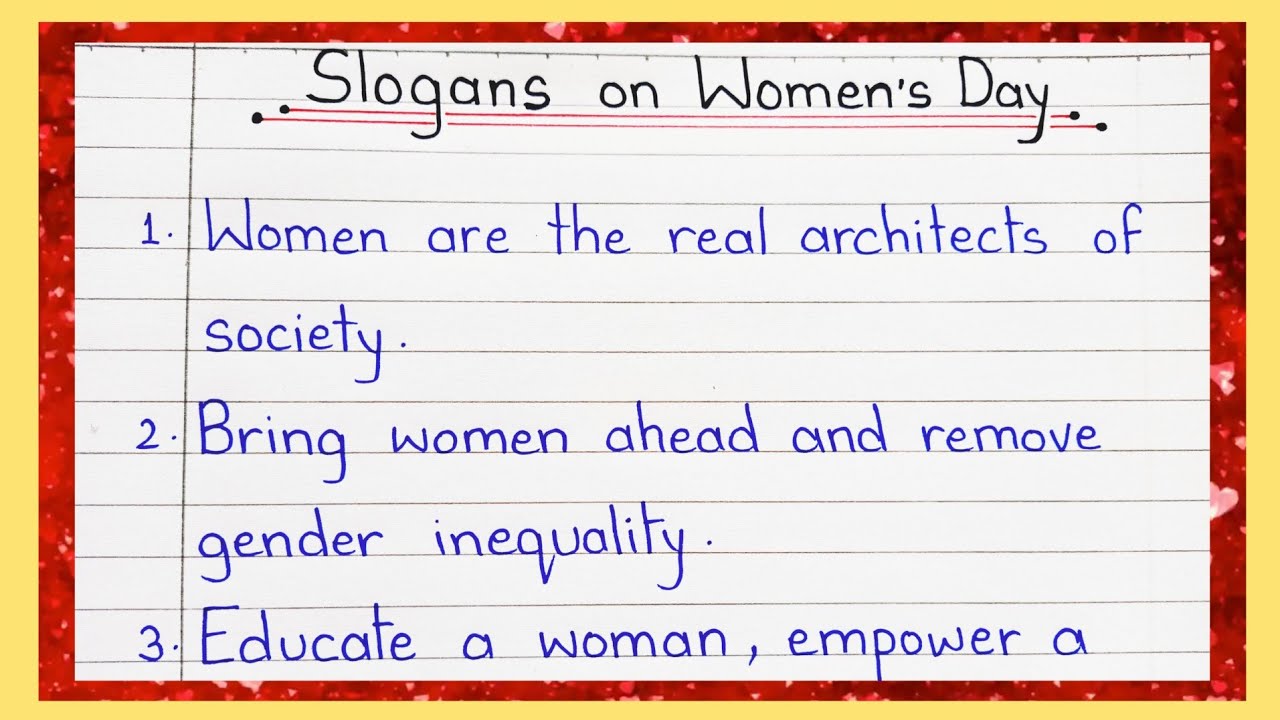 Slogans on Women's Day
1. Women are the real architects of
society.
2. Bring women ahead and remove
gender inequality.
3. Educate a woman, empower a